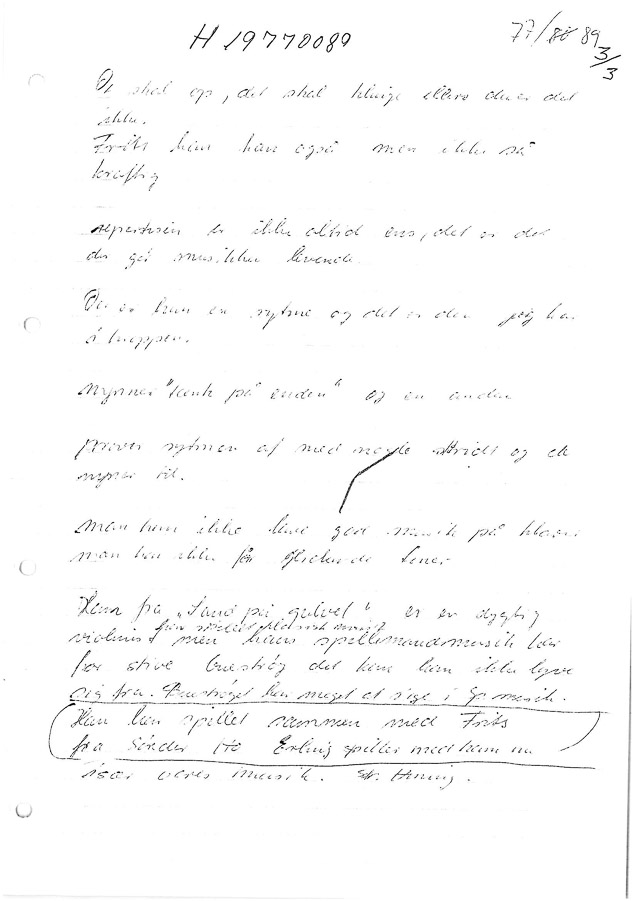 H 19770089
77/88 89
3/3
De skal op, det skal klinge ellers duer det
ikke.
Frits kan han også men ikke så
kraftig
repertoiren er ikke altid ens, det er det
der gør musikken levende.
Der er kun en rytme og det er den jeg har
i kroppen.
nynner "tænk på enden" og en anden
prøver rytmen af med nogle skridt og
nynner til.
man kan ikke lave god musik på klaver
man kan ikke få glidende toner
Ham fra "Sand på gulvet" er en dygtig
violinist men hans spillemandsmusik har
for stive buestrøg det kan han ikke lyve
sig fra. Buestrøget har meget at sige i musik.
Han har spillet sammen med Frits
fra Sønder Ho Erling spiller med ham nu
især vores musik.